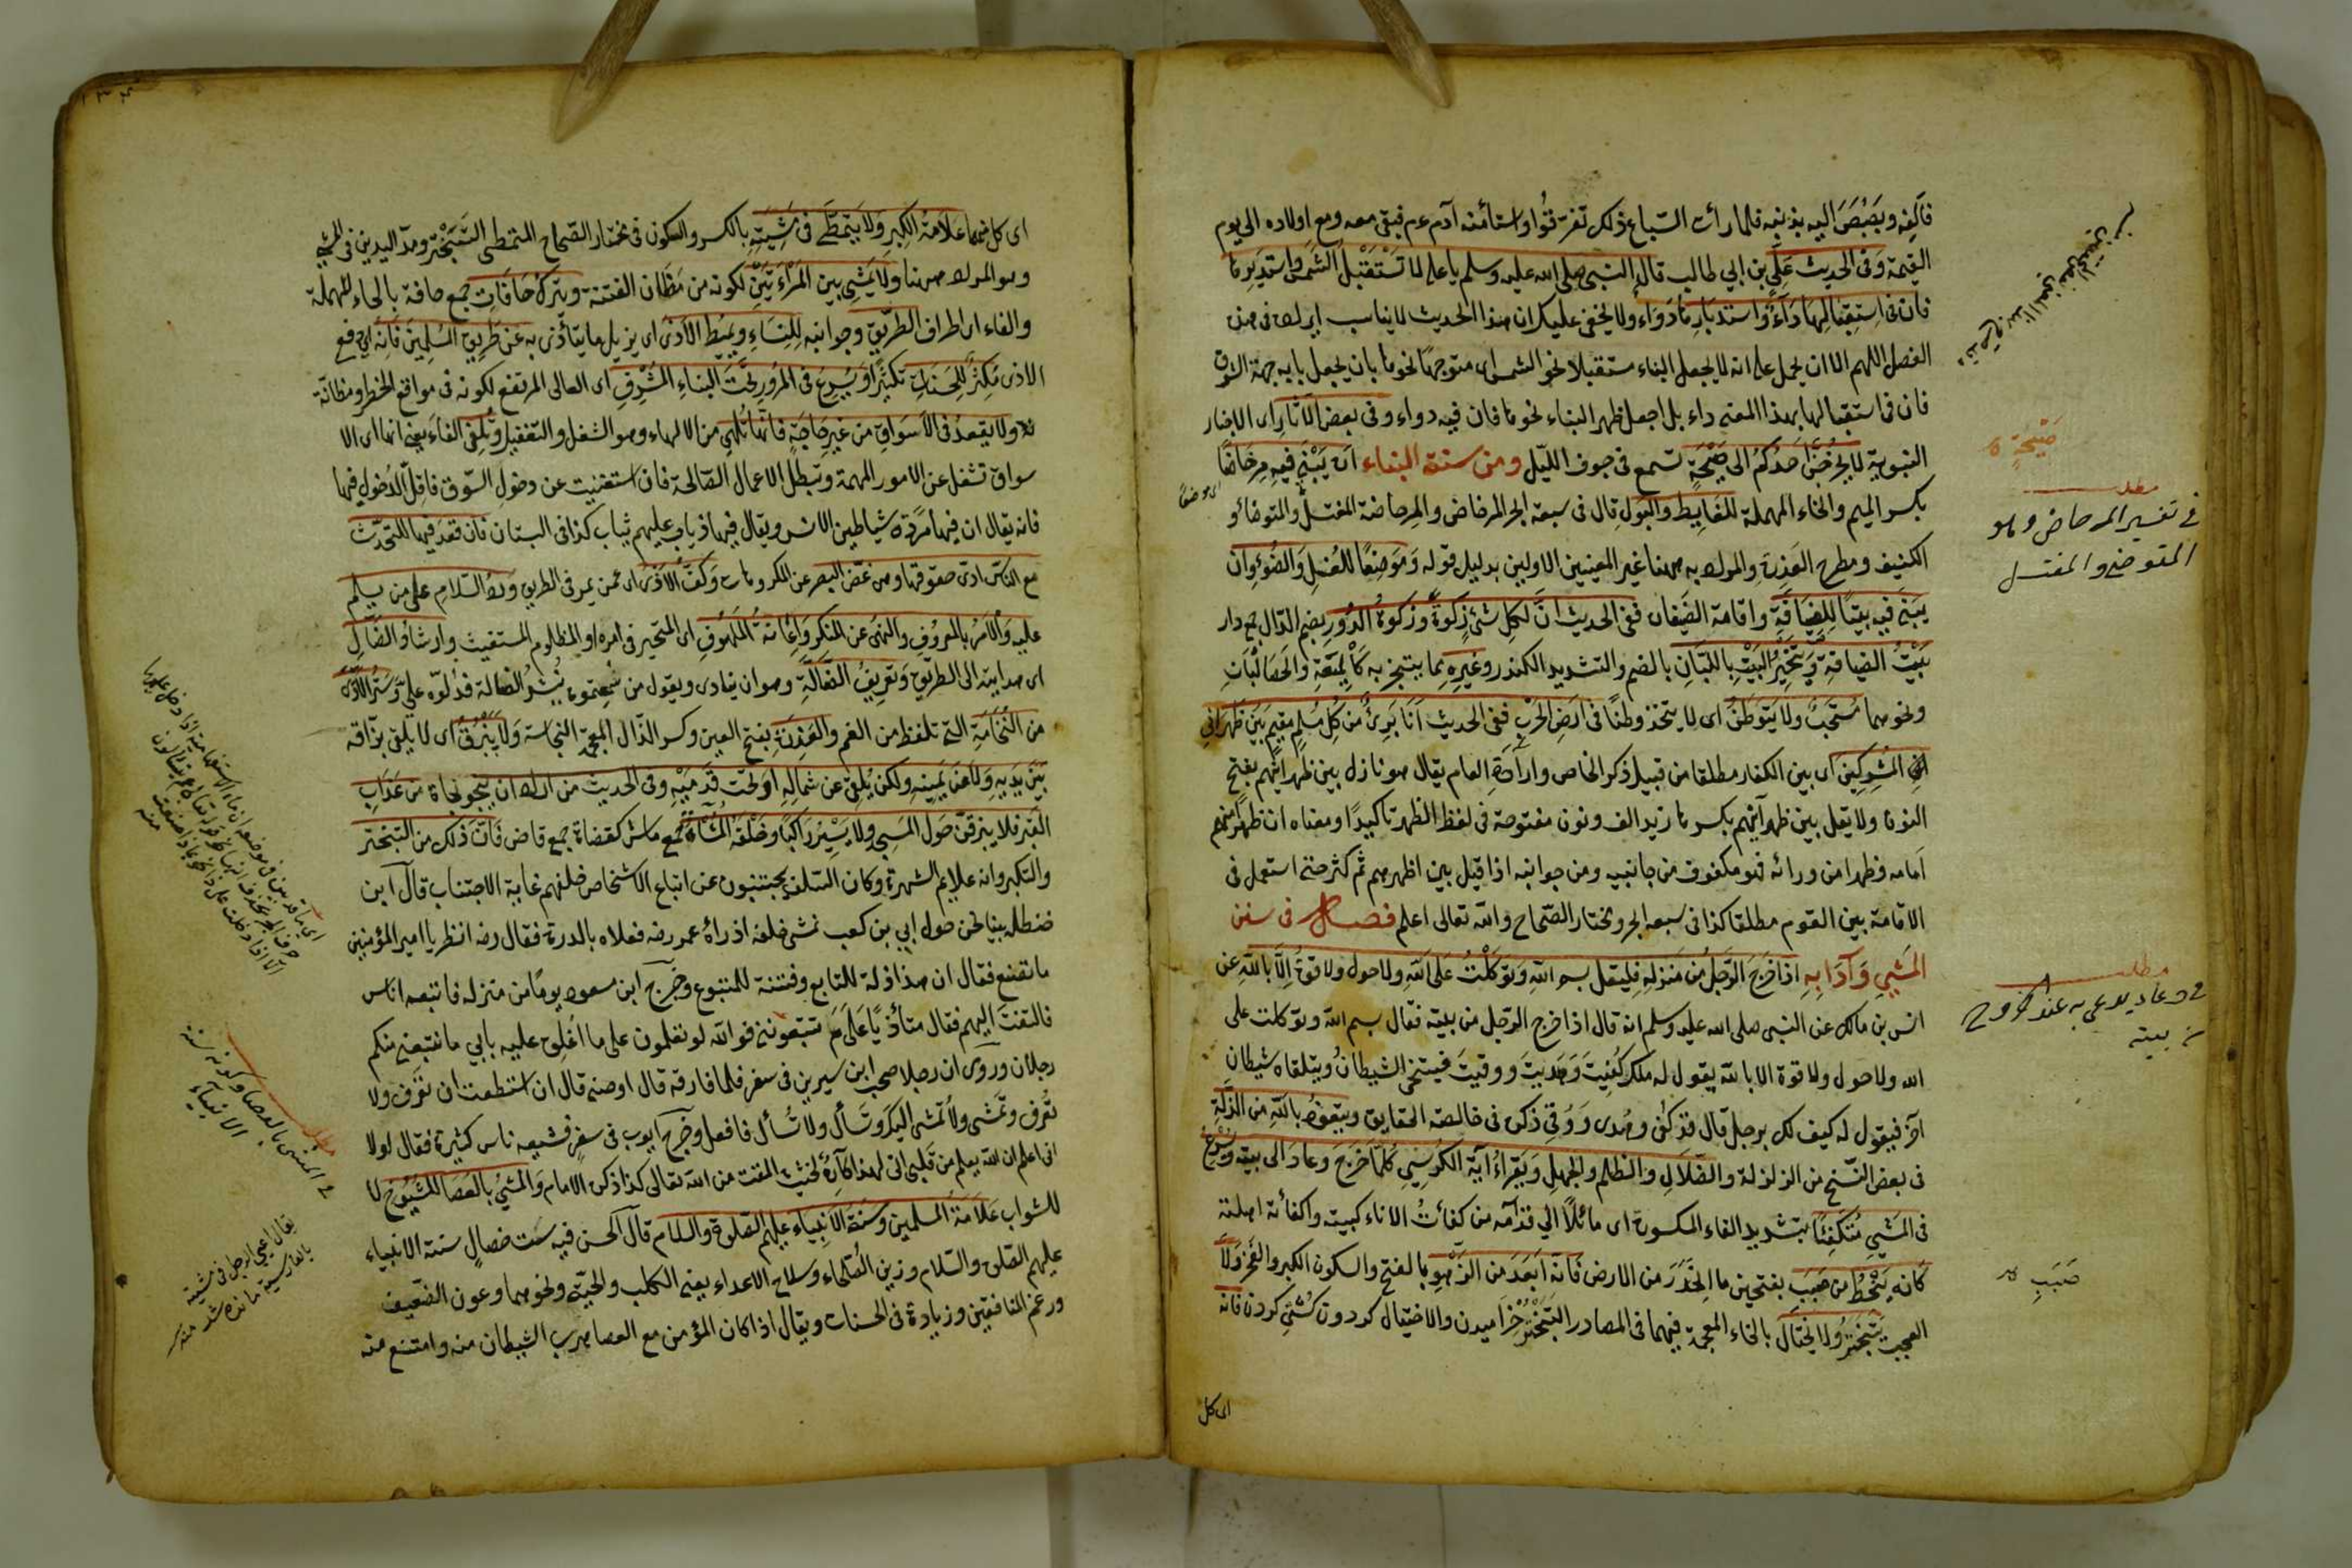 فألفه وبصبص اليه بذنبه فلما رأت السباع ذلك تفرقوا واستأمنه آدم عم فبقى معه ومع اولاده الى يوم
القيمة وفى الحديث على بن ابي طالب قال النبى صلى الله عليه وسلم يا على لا تستقبل الشمس واستدبرها
فان فى استقبالها داء واستدبارها دواء ولا يخفى عليك ان هذا الحديث لا يناسب ايراده فى هذا
الفصل اللهم الا ان يحمل على انه لا يجعل البناء مستقبلا نحو الشمس اى متوجها نحوها بان يجعل بابه جهة الشرق
فان فى استقبالها بهذا المعنى داء بل اجعل ظهر البناء نحوها فان فيه دواء وفى بعض الآثار اى الاخبار
النبوية لا يخرجن احدكم الى صيحة تسمع فى جوف الليل ومن سنة البناء ان يبنى فيه مرحاضا
بكسر الميم والحاء المهملة للغايط والبول قال فى سبعة ابحر المرحاض والمرحاضة المغتسل والمتوضأ و
الكنيف ومطرح العذرة والمراد به ههنا غير المعنيين الاولين بدليل قوله وموضعا للغسل والضوء وان
يبنى فيه بيتا للضيافة واقامة الضيفان ففى الحديث ان لكل شئ زكوة وزكوة الدور بضم الدال جمع دار
بيت الضيافة وتبخير البيت باللبان بالضم والتشديد الكندر وغيره مما يتبخر به كالميعة والحصا لبان
ونحوهما مستحب ولا يتوطن اى لا يتخذ وطنا فى ارض الحرب ففى الحديث انا برئ من كل مسلم مقيم بين ظهرانى
المشركين اى بين الكفار مطلقا من قبيل ذكر الخاص وارادة العام يقال هو نازل بين ظهرانيهم بفتح
النون ولا يقل بين ظهرانيهم بكسرها زيد الف ونون مفتوحة فى لفظ الظهر تاكيدا ومعناه ان ظهرا منهم
امامه وظهرا من ورائه فهو مكفوف من جانبيه ومن جوانبه اذا قيل بين اظهرهم ثم كثر حتى استعمل فى
الاقامة بين القوم مطلقا كذا فى سبعه ابحر ومختار الصحاح والله تعالى اعلم فصل فى سنن
المشى وآدابه اذا خرج الرجل من منزله فليقل بسم الله وتوكلت على الله ولا حول ولا قوة الا بالله عن
انس بن مالك عن النبى صلى الله عليه وسلم انه قال اذا خرج الرجل من بيته فقال بسم الله وتوكلت على
الله ولا حول ولا قوة الا بالله يقول له ملك كفيت وهديت ووقيت فيتنحى الشيطان ويتلقاه شيطان
آخر فيقول له كيف لك برجل قال قد كفى وهدى ووقى ذكره فى خالصة الحقايق ويتعوذ بالله من الزلة
فى بعض النسخ من الزلزلة والضلال والظلم والجهل ويقراء آية الكرسى كلما خرج وعاد الى بيته ويسرع
فى المشى متكفئا بتشديد الفاء المكسورة اى مائلا الى قدامه من كفأت الاناء كببته واكفأته املته
كانه ينحط من صبب بفتحتين ما انحدر من الارض فانه ابعد من الزهو بالفتح والسكون الكبر والفخر ولا
يتبختر ولا يختال بالخاء المعجمة فيهما فى المصادر التبختر خراميدن والاختيال كردن كشى كردن فانه
اى كل
صيحة
مطلب
فى تفسير المرحاض وهو
المتوضى والمغتسل
مطلب
فى دعاء يدعى به عند الخروج
من بيته
صبب
اى كل منهما علامة الكبر ولا يتمطى فى مشيته بالكسر والسكون فى مختار الصحاح التمطى التبختر ومد اليدين فى المشى
وهو المراد ههنا ولا يمشى بين المرأتين لكونه من مظان الفتنة ويترك حافات جمع حافة بالحاء المهملة
والفاء اى اطراف الطريق وجوانبه للنساء ويميط الاذى اى يزيل ما يتأذى به عن طريق المسلمين فانه اى رفع
الاذى مكثر للحسنات تكثيرا ويسرع فى المرور تحت البناء المشرف اى العالى المرتفع لكونه فى مواقع الخطر ومظانه
ولا يقعد فى الاسواق من غير حاجة فانها تلهى من الالهاء وهو الشغل والتغفيل وتلغى الفاء يعنى انها اى الا
سواق تشغل عن الامور المهمة وتبطل الاعمال الصالحة فان استغنيت عن دخول السوق فاقل الدخول فيها
فانه يقال ان فيها مردة شياطين الانس ويقال فيها ذياب عليهم ثياب كذا فى البستان فان قعد فيها للتحدث
مع الناس ادى حقوقها وهى غض البصر عن المكروهات وكف الاذى اى عمن يمر فى الطريق ورد السلام على من يسلم
عليه والامر بالمعروف والنهى عن المنكر واغاثة الملهوف اى المتحير فى امره او المظلوم المستغيث وارشاد الضال
اى هدايته الى الطريق وتعريف الضالة وهو ان ينادى ويقول من سمعتموه ينشد الضالة فدلوه على وستر الاذى
من النخامة التى تلفظ من الفم والعذرة بفتح العين وكسر الذال المعجمة النجاسة ولا يبزق اى لا يلقى بزاقه
بين يديه ولا عن يمينه ولكن يلقى عن شماله او تحت قدميه وفى الحديث من اراد ان ينجو نجاة من عذاب
القبر فلا يبزقن حول المسجد ولا يسير راكبا وخلفه المشاة جمع ماش كقضاة جمع قاض فان ذلك من التبختر
والتكبر وانه علايم الشهرة وكان السلف يجتنبون عن اتباع الاشخاص خلفهم غاية الاجتناب قال ابن
حنظلة بينا نحن حول ابي بن كعب نمشى خلفه اذ رآه عمر رضه فعلاه بالدرة فقال رضه انظر يا امير المؤمنين
ما تصنع فقال ان هذا ذلة للتابع وفتنة للمتبوع وخرج ابن مسعود يوما من منزله فاتبعه اناس
فالتفت اليهم فقال متأذيا على م تتبعوننى فوالله لو تعلمون على ما اغلق عليه بابي ما تتبعنى منكم
رجلان وروى ان رجلا صحب ابن سيرين فى سفر فلما فارقه قال اوصنى قال ان استطعت ان تعرف ولا
تعرف وتمشى ولا تمشى اليك وتسأل ولا تسأل فافعل وخرج ايوب فى سفر فشيعه ناس كثيرة فقال لولا
انى اعلم ان الله يعلم من قلبى انى لهذا كاره لخشيت المقت من الله تعالى كذا ذكره الامام والمشى بالعصا للشيوخ لا
للشواب علامة المسلمين وسنة الانبياء عليهم الصلوة والسلام قال الحسن فيه ست خصال سنة الانبياء
عليهم الصلوة والسلام وزين الصلحاء وسلاح الاعداء يعنى الكلب والحية ونحوهما وعون الضعيف
ورغم المنافقين وزيادة فى الحسنات ويقال اذا كان المؤمن مع العصا يهرب الشيطان منه وامتنع منه
مطلب
فى المشى بالعصا وكونه سنة
الانبياء
يقال اعيى الرجل فى مشيته
بالفارسية مانده شد منه